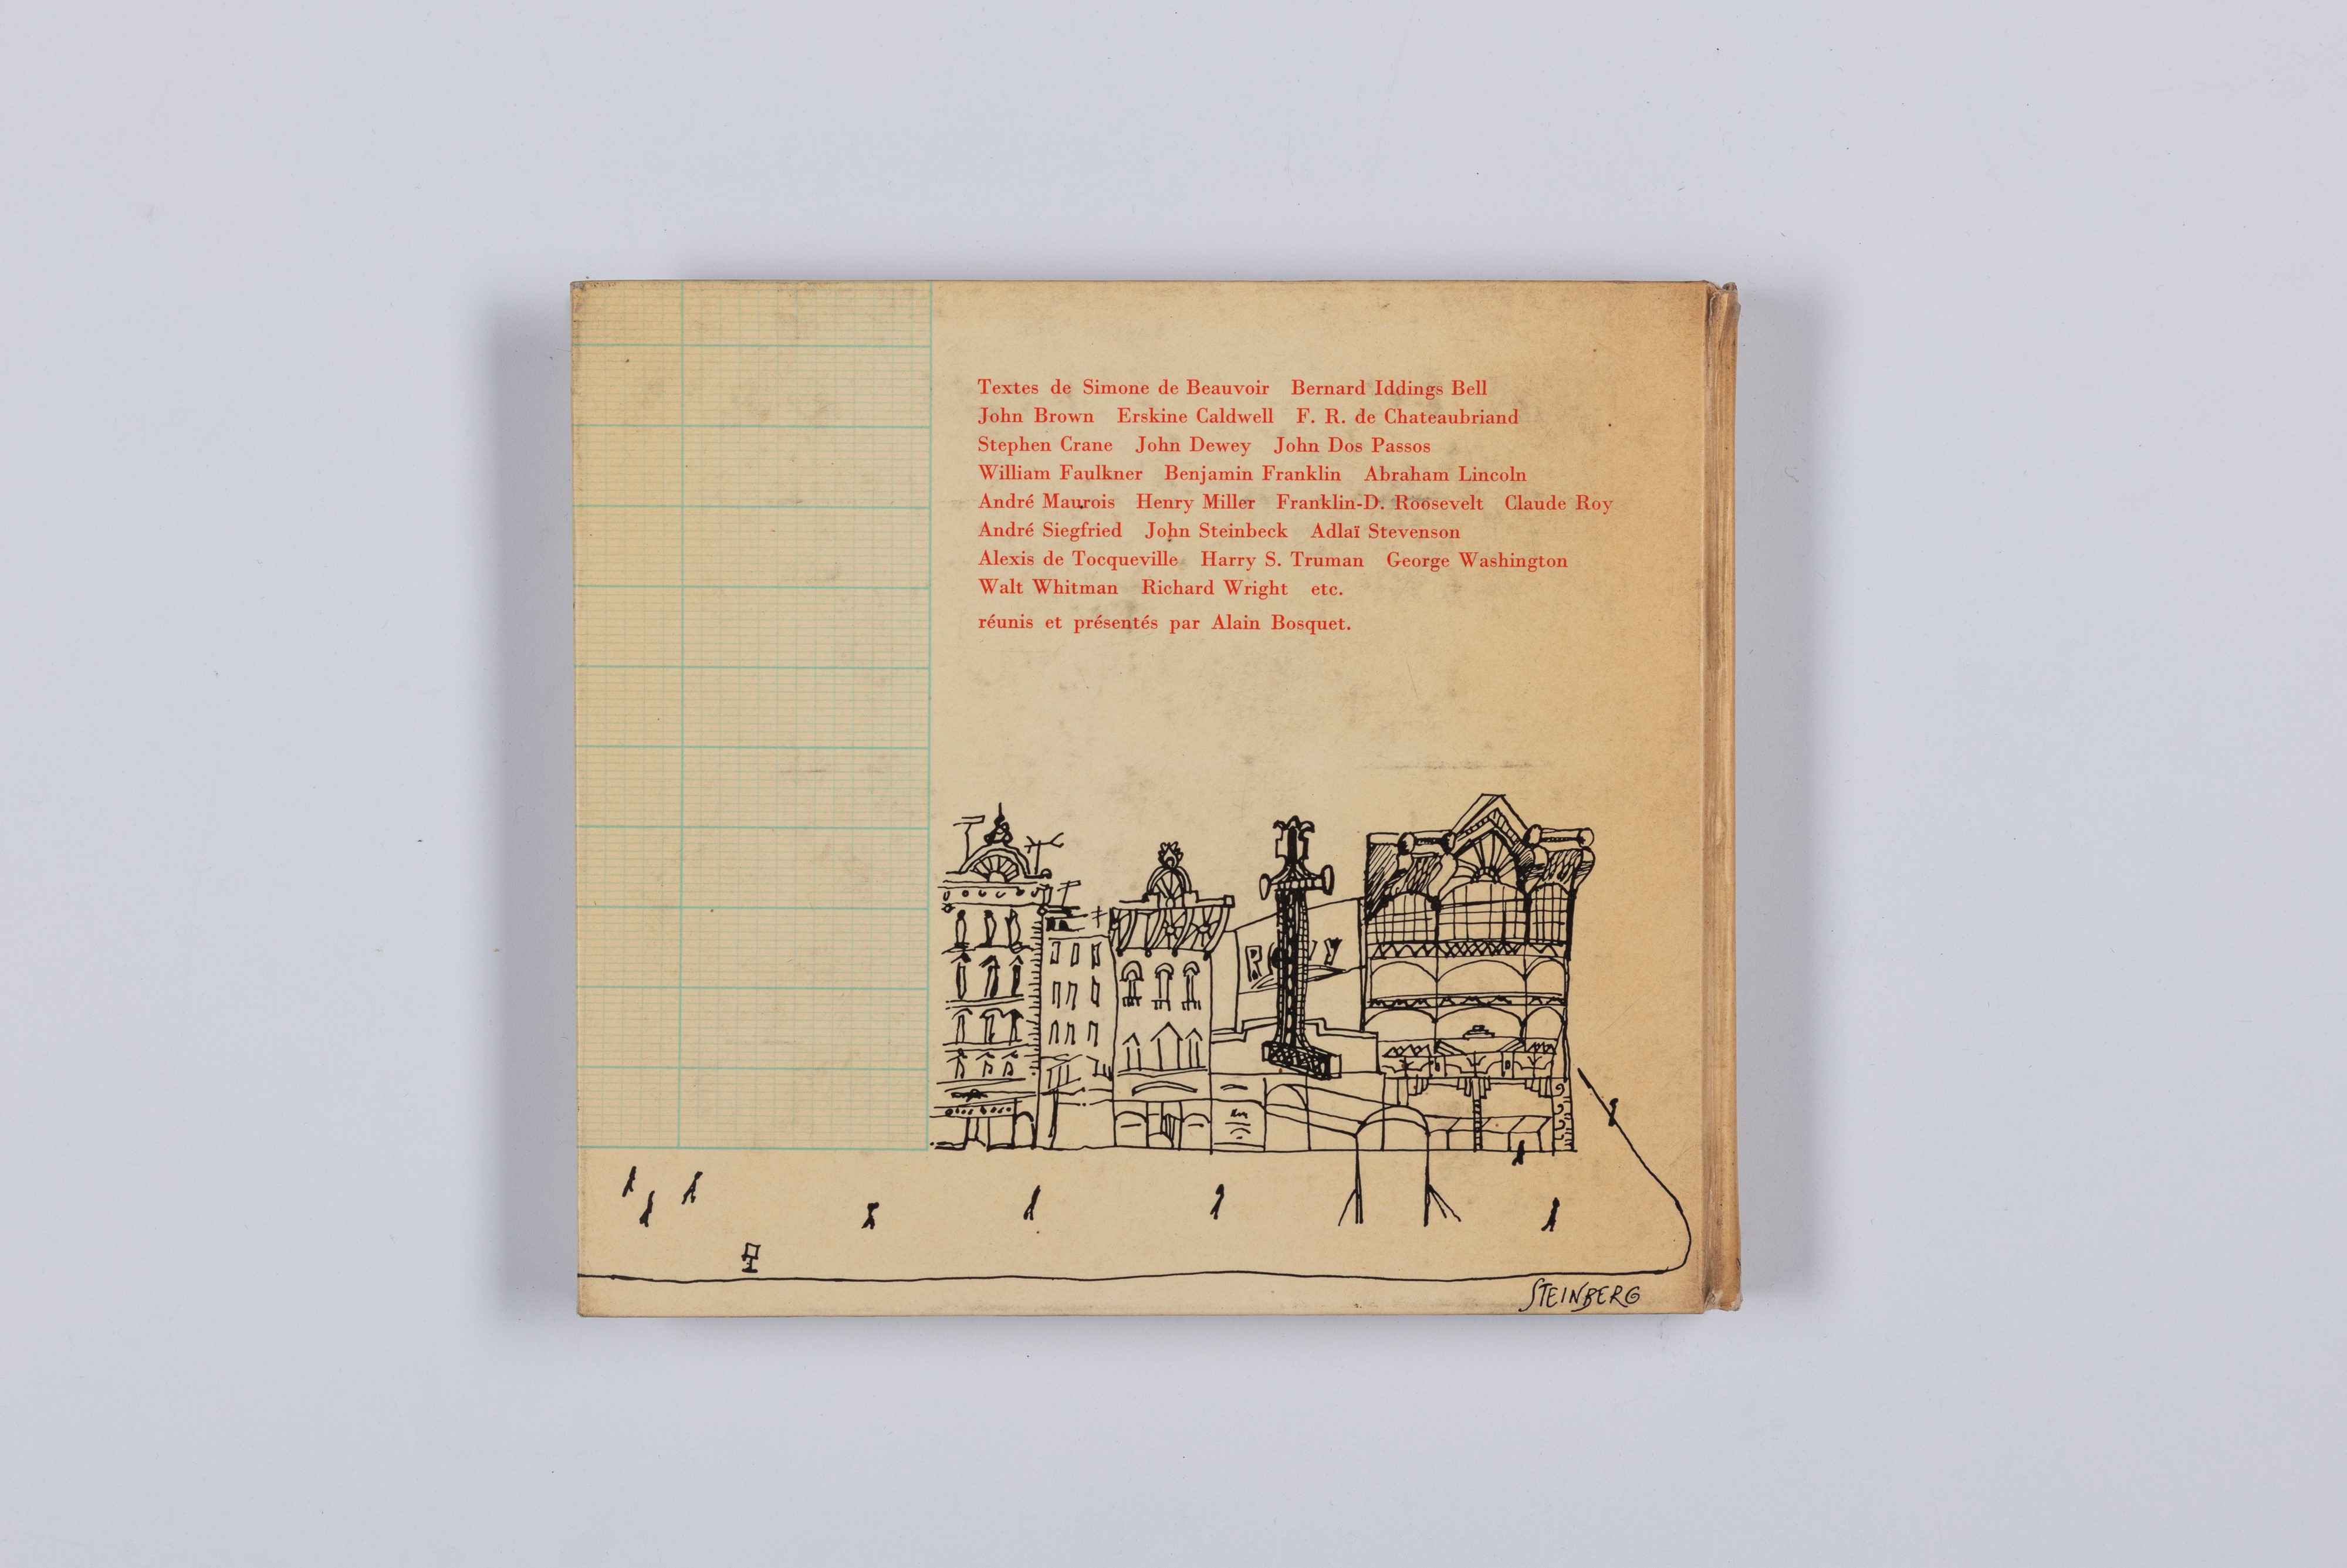 Textes de Simone de Beauvoir Bernard Iddings Bell
John Brown Erskine Caldwell F. R. de Chateaubriand
Stephen Crane John Dewey John Dos Passos
William Faulkner Benjamin Franklin Abraham Lincoln
André Maurois Henry Miller Franklin-D. Roosevelt Claude Roy
André Siegfried John Steinbeck Adlaï Stevenson
Alexis de Tocqueville Harry S. Truman George Washington
Walt Whitman Richard Wright etc.
réunis et présentés par Alain Bosquet.
STEINBERG